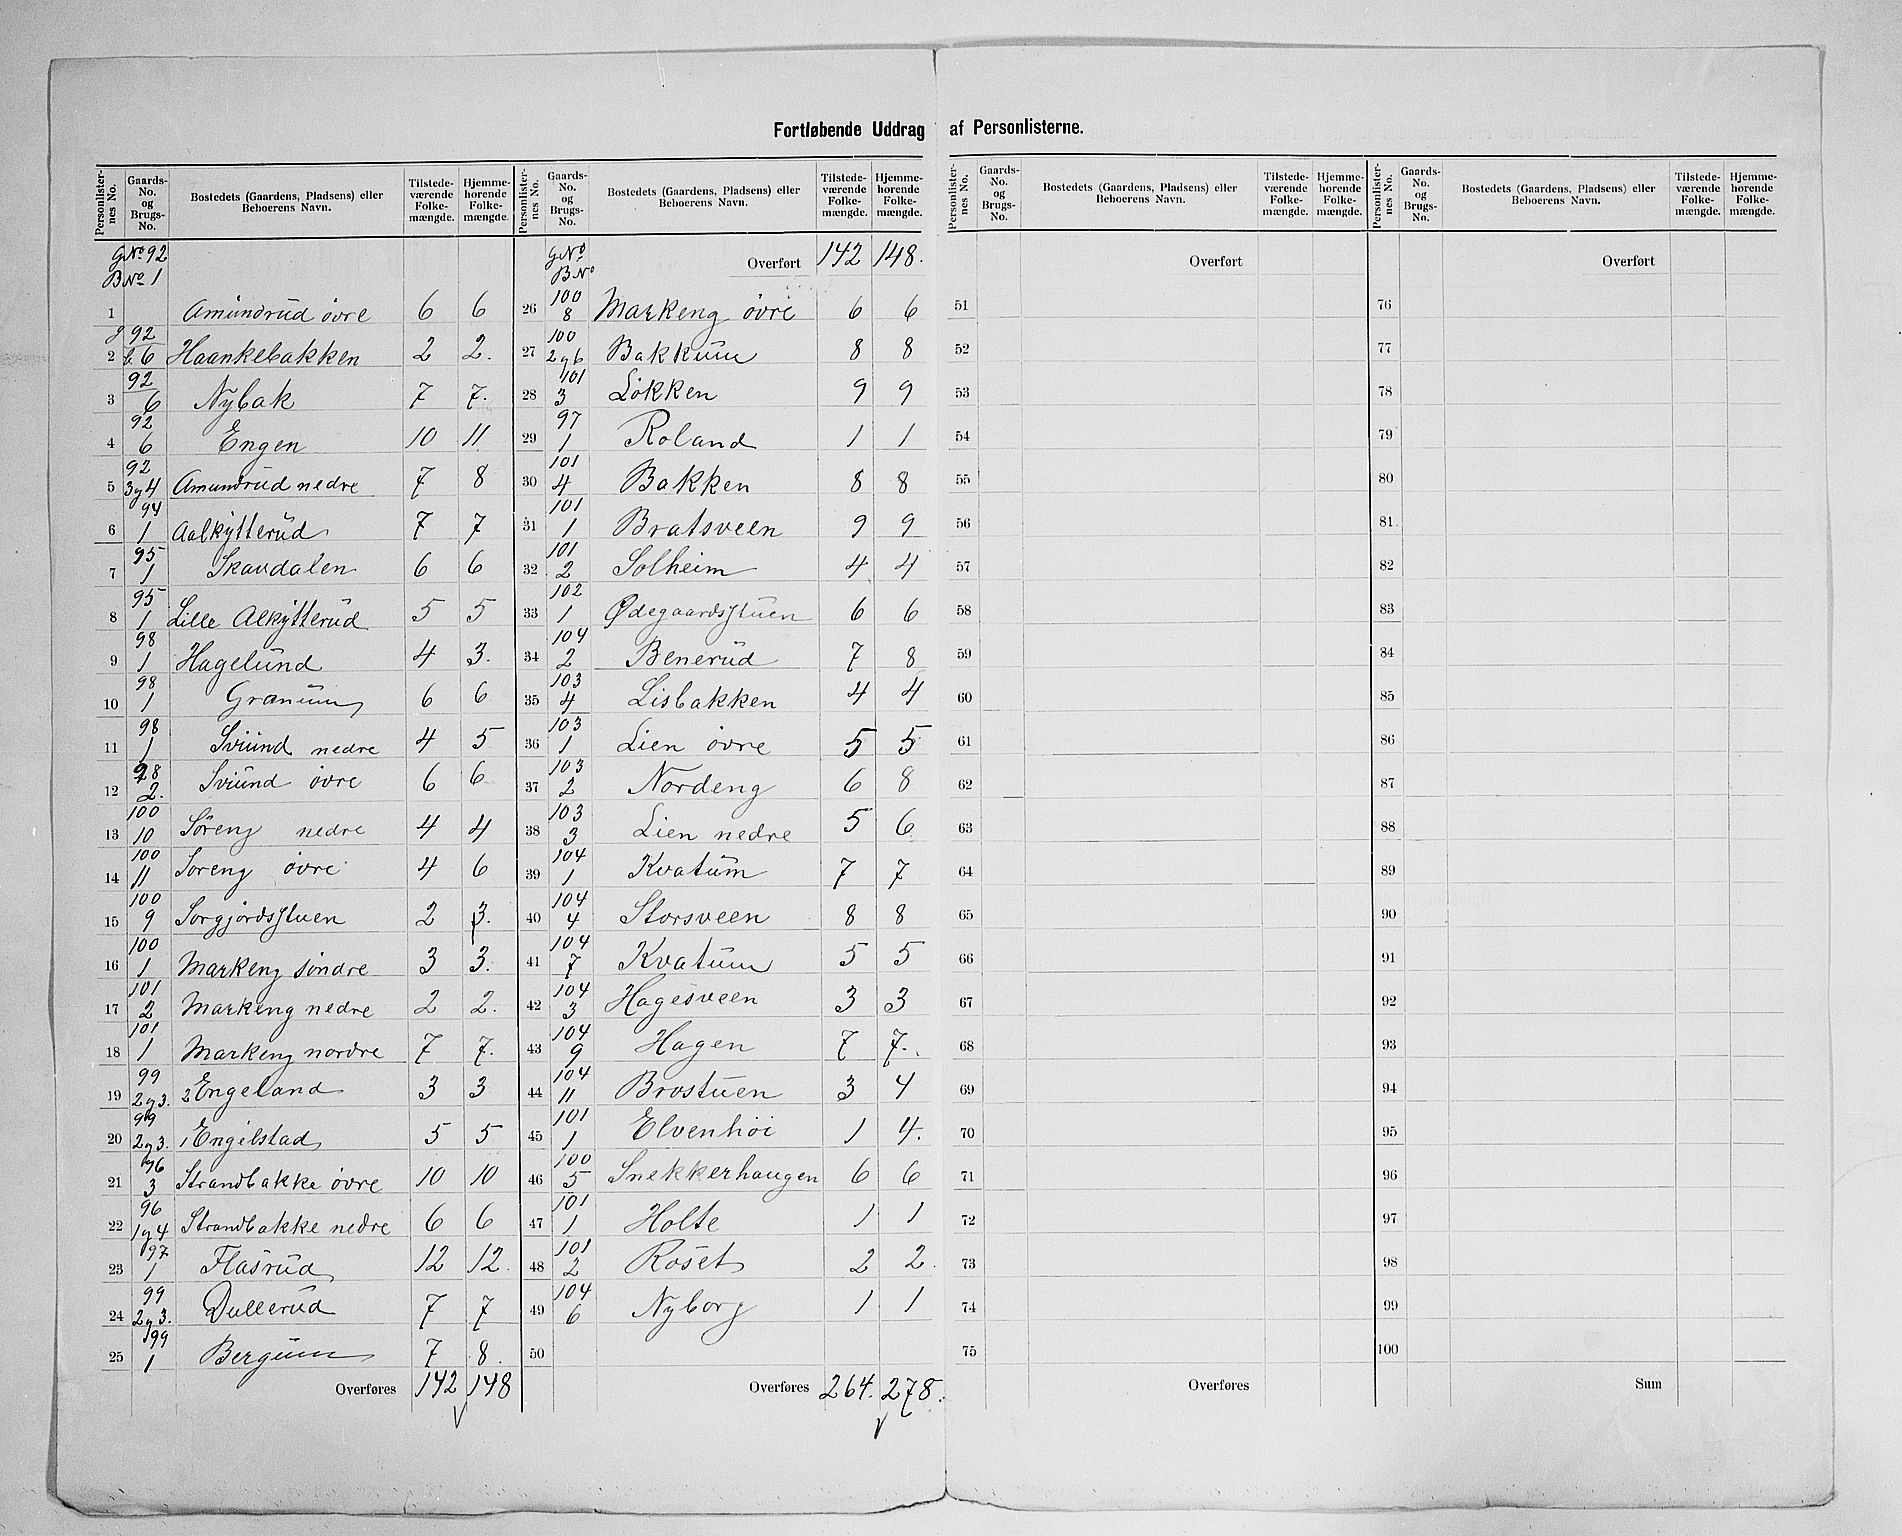 Fortløbende Uddrag af Personlisterne.
Personlisternes No. | Gaards-No. og Brugs-No. | Bostedets (Gaardens, Pladsens) eller Beboerens Navn. | Tilstedeværende Folkemængde. | Hjemmehorende Folkemængde.
G No 92
B No 1
1 Amundrud övre 6 6
2 g 92 b 6 Haankebakken 2 2.
3 92 6 Nybak 7 7.
4 92 6 Engen 10 11
5 92 3 g 4 Amundrud nedre 7 8
6 94 1 Aalkytterud 7 7
7 95 1 Skavdalen 6 6
8 95 1 Lille Alkytterud 5 5
9 98 1 Hagelund 4 3.
10 98 1 Granum 6 6
11 98 1 Sviund nedre 4 5
12 98 2. Sviund övre 6 6
13 100 10 Söreng nedre 4 4
14 100 11 Soreng övre 4 6
15 100 9 Sorgjordsstuen 2 3.
16 100 1 Markeng söndre 3 3.
17 101 2 Markeng nedre 2 2.
18 101 1 Markeng nordre 7 7.
19 99 2 g 3. 2 Engeland 3 3
20 99 2 g 3. 1 Engelstad 5 5
21 96 3 Strandbakke övre 10 10
22 96 1 g 4 Strandbakke nedre 6 6
23 97 1 Flasrud 12 12.
24 99 2 g 3. Dullerud 7 7
25 99 1 Bergum 7 8.
Overføres 142 148
Personlisternes No. | Gaards-No. og Brugs-No. | Bostedets (Gaardens, Pladsens) eller Beboerens Navn. | Tilstedeværende Folkemængde. | Hjemmehorende Folkemængde.
G No
B No
Overført 142 148.
26 100 8 Markeng övre 6 6
27 100 2 g 6 Bakkum 8 8
28 101 3 Lökken 9 9
29 97 1 Roland 1 1
30 101 4 Bakken 8 8
31 101 1 Bratsveen 9 9
32 101 2 Solheim 4 4
33 102 1 Ødegaardsstuen 6 6
34 104 2 Benerud 7 8
35 103 4 Lisbakken 4 4
36 103 1 Lien övre 5 5
37 103 2 Nordeng 6 8
38 103 3 Lien nedre 5 6
39 104 1 Kvatum 7 7
40 104 4 Storsveen 8 8
41 104 7 Kvatum 5 5
42 104 3 Hagesveen 3 3
43 104 9 Hagen 7 7.
44 104 11 Brostuen 3 4
45 101 1 Elvenhöi 1 4.
46 100 5 Snekkerhaugen 6 6
47 101 1 Holte 1 1
48 101 2 Roset 2 2.
49 104 6 Nyborg 1 1
50
Overføres 264. 278.
Personlisternes No. | Gaards-No. og Brugs-No. | Bostedets (Gaardens, Pladsens) eller Beboerens Navn. | Tilstedeværende Folkemængde. | Hjemmehorende Folkemængde.
Overført
51
52
53
54
55
56
57
58
59
60
61
62
63
64
65
66
67
68
69
70
71
72
73
74
75
Overføres
Personlisternes No. | Gaards-No. og Brugs-No. | Bostedets (Gaardens, Pladsens) eller Beboerens Navn. | Tilstedeværende Folkemængde. | Hjemmehorende Folkemængde.
Overført
76
77
78
79
80
81
82
83
84
85
86
87
88
89
90
91
92
93
94
95
96
97
98
99
100
Sum